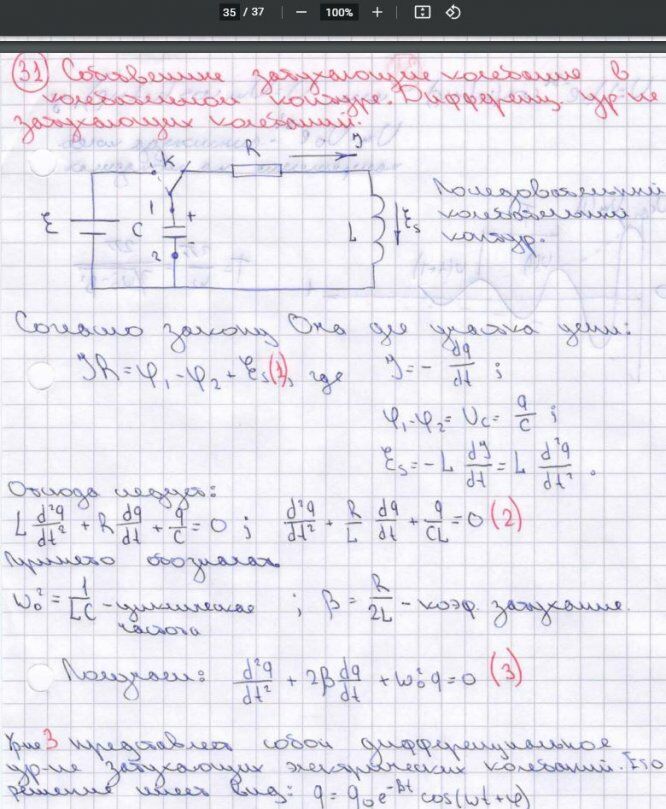 35 / 37 — 100% +
31 Собственные затухающие колебания в
колебательном контуре. Дифференц. ур-ие
затухающих колебаний.
K R I
ℰ C 1 + 2 L ℰs
Последовательный
колебательный
контур.
Согласно закону Ома для участка цепи:
IR = φ₁ - φ₂ + ℰs (1), где I = - dq/dt ;
φ₁ - φ₂ = Uc = q/C ;
ℰs = -L dI/dt = L d²q/dt² .
Отсюда следует:
L d²q/dt² + R dq/dt + q/C = 0 ; d²q/dt² + R/L dq/dt + q/CL = 0 (2)
Принято обозначать
ω₀² = 1/LC - циклическая частота ; β = R/2L - коэф. затухания.
Получаем: d²q/dt² + 2β dq/dt + ω₀² q = 0 (3)
Ур-ие 3 представляет собой дифференциальное
ур-ие затухающих электрических колебаний. Его
решение имеет вид: q = q₀ e^-βt cos(ωt + φ)